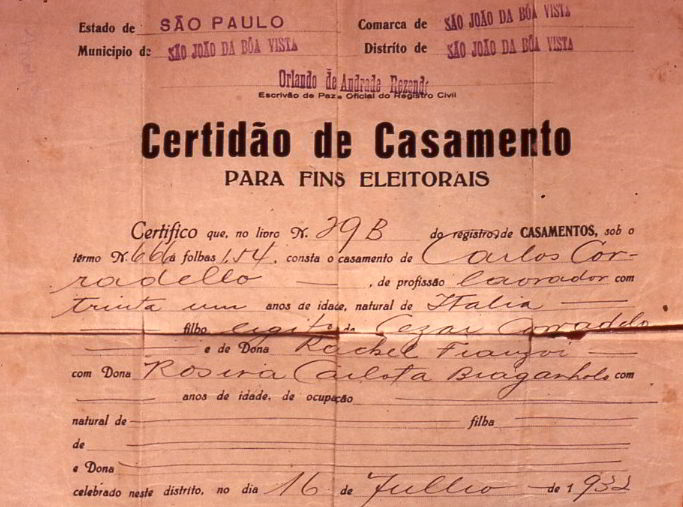 Estado de SÃO PAULO Comarca de SÃO JOÃO DA BÔA VISTA
Municipio de SÃO JOÃO DA BÔA VISTA Distrito de SÃO JOÃO DA BÔA VISTA
Orlando de Andrade Rezende
Escrivão de Paz e Oficial do Registro Civil
Certidão de Casamento
PARA FINS ELEITORAIS
Certifico que, no livro N. 29B do registro de CASAMENTOS, sob o
têrmo N. 666 á folhas 154, consta o casamento de Carlos Cor-
radello, de profissão lavrador com
trinta um anos de idade, natural de Italia
filho legitº de Cezar Corradelo
e de Dona Rachel
com Dona Rosina Carlota Braganholo com
anos de idade, de ocupação
natural de filha
de
e Dona
celebrado neste distrito, no dia 16 de Julho de 1932